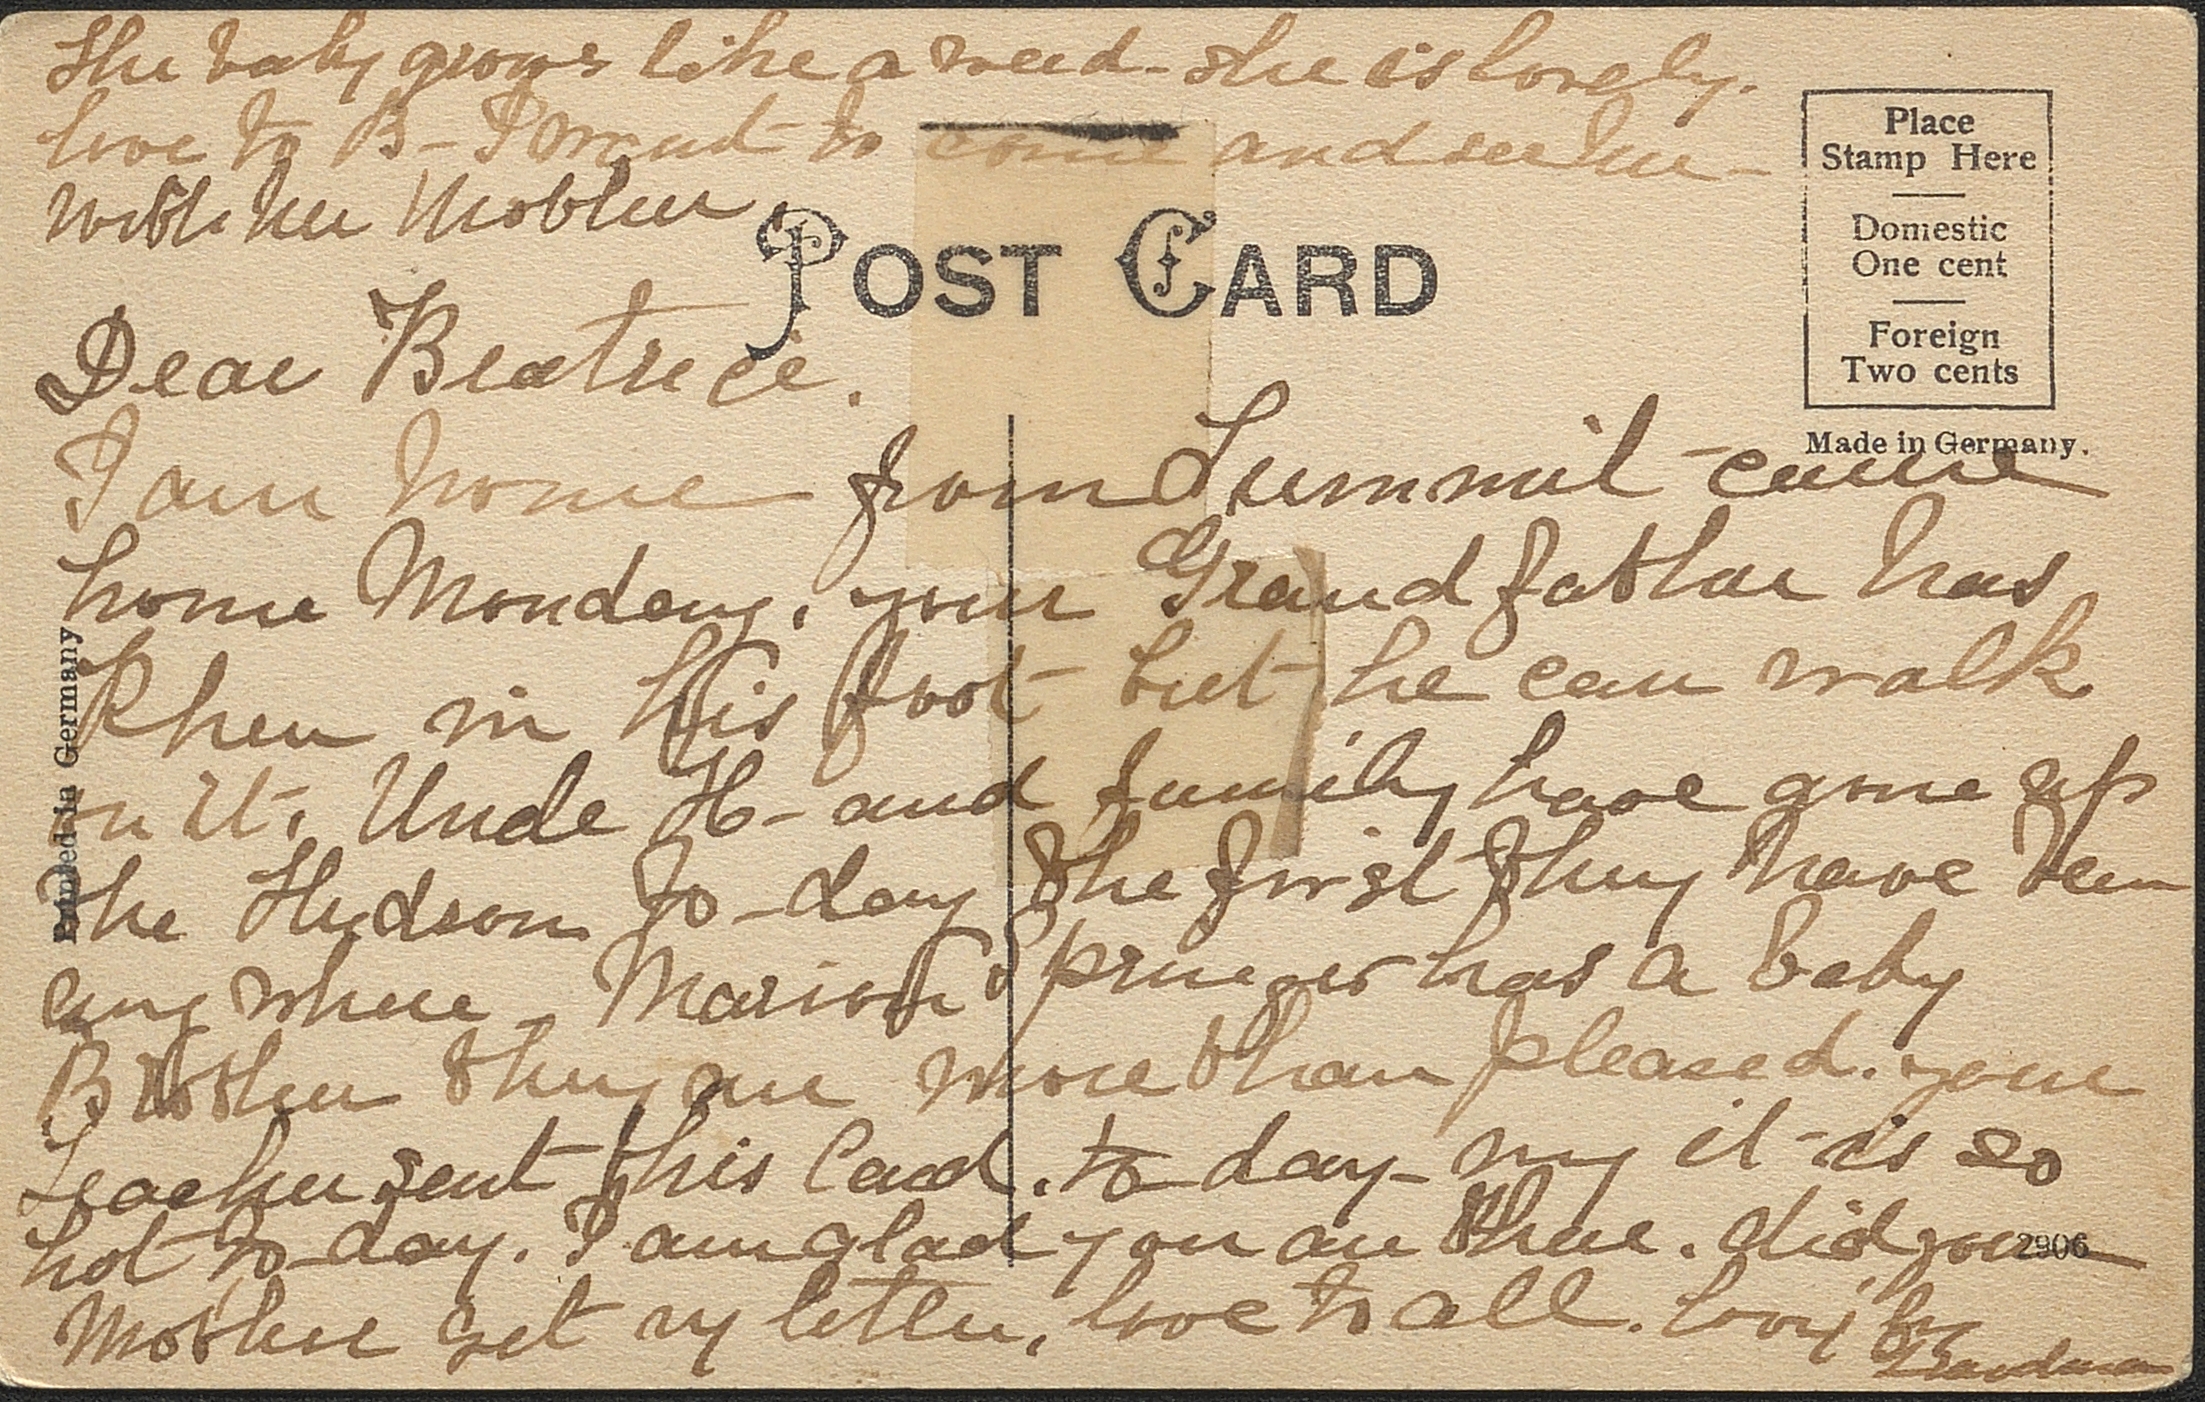 The baby grows like a weed - she is lovely.
love to B - I want to come and see her -
with her Mother.
POST CARD
Place
Stamp Here
Domestic
One cent
Foreign
Two cents
Made in Germany.
Dear Beatrice.
I am home from Summit - came
home Monday. your Grandfather has
Rheu in his foot but he can walk
on it. Uncle H - and family have gone up
the Hudson to-day the first they have been
any where. Marion Springer has a baby
Brother they are more than pleased. your
teacher sent this Card. to-day - my it is so
hot to-day. I am glad you are there. did your
Mother get my letter, love to all. Lovingly
Grandma
Printed in Germany
2906